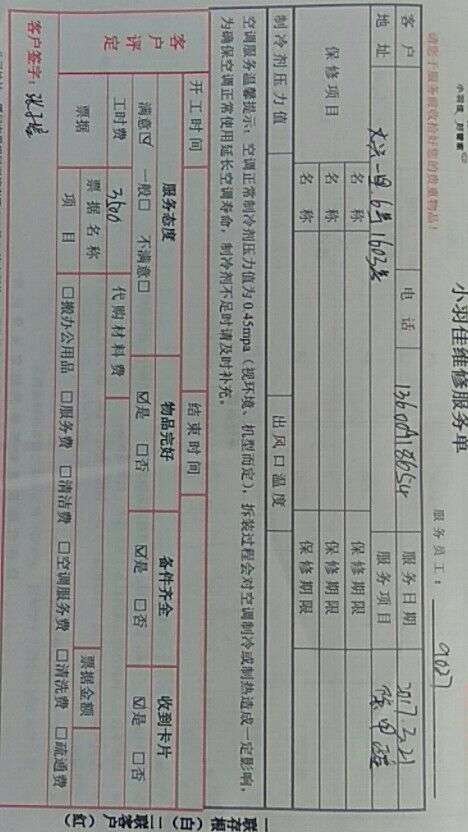 小羽佳维修服务单
服务员工：9027
请您于服务前收拾好您的贵重物品！
客户 电话 服务日期 2017.3.21
地址 6号1603房 服务项目 除甲醛
保修项目 名称 保修期限
名称 保修期限
名称 保修期限
制冷剂压力值 出风口温度
空调服务温馨提示：空调正常制冷剂压力值为0.45mpa（视环境、机型而定），拆装过程会对空调制冷或制热造成一定影响，
为确保空调正常使用延长空调寿命，制冷剂不足时请及时补充。
开工时间 结束时间
客户评定 服务态度 物品完好 备件齐全 收到卡片
满意☑ 一般□ 不满意□ ☑是 □否 ☑是 □否 ☑是 □否
工时费 3500 代购材料费
票据 票据名称 票据金额
项目 □搬办公用品 □服务费 □清洁费 □空调服务费 □清洗费 □疏通费
客户签字：
一联存根（白）二联客户（红）